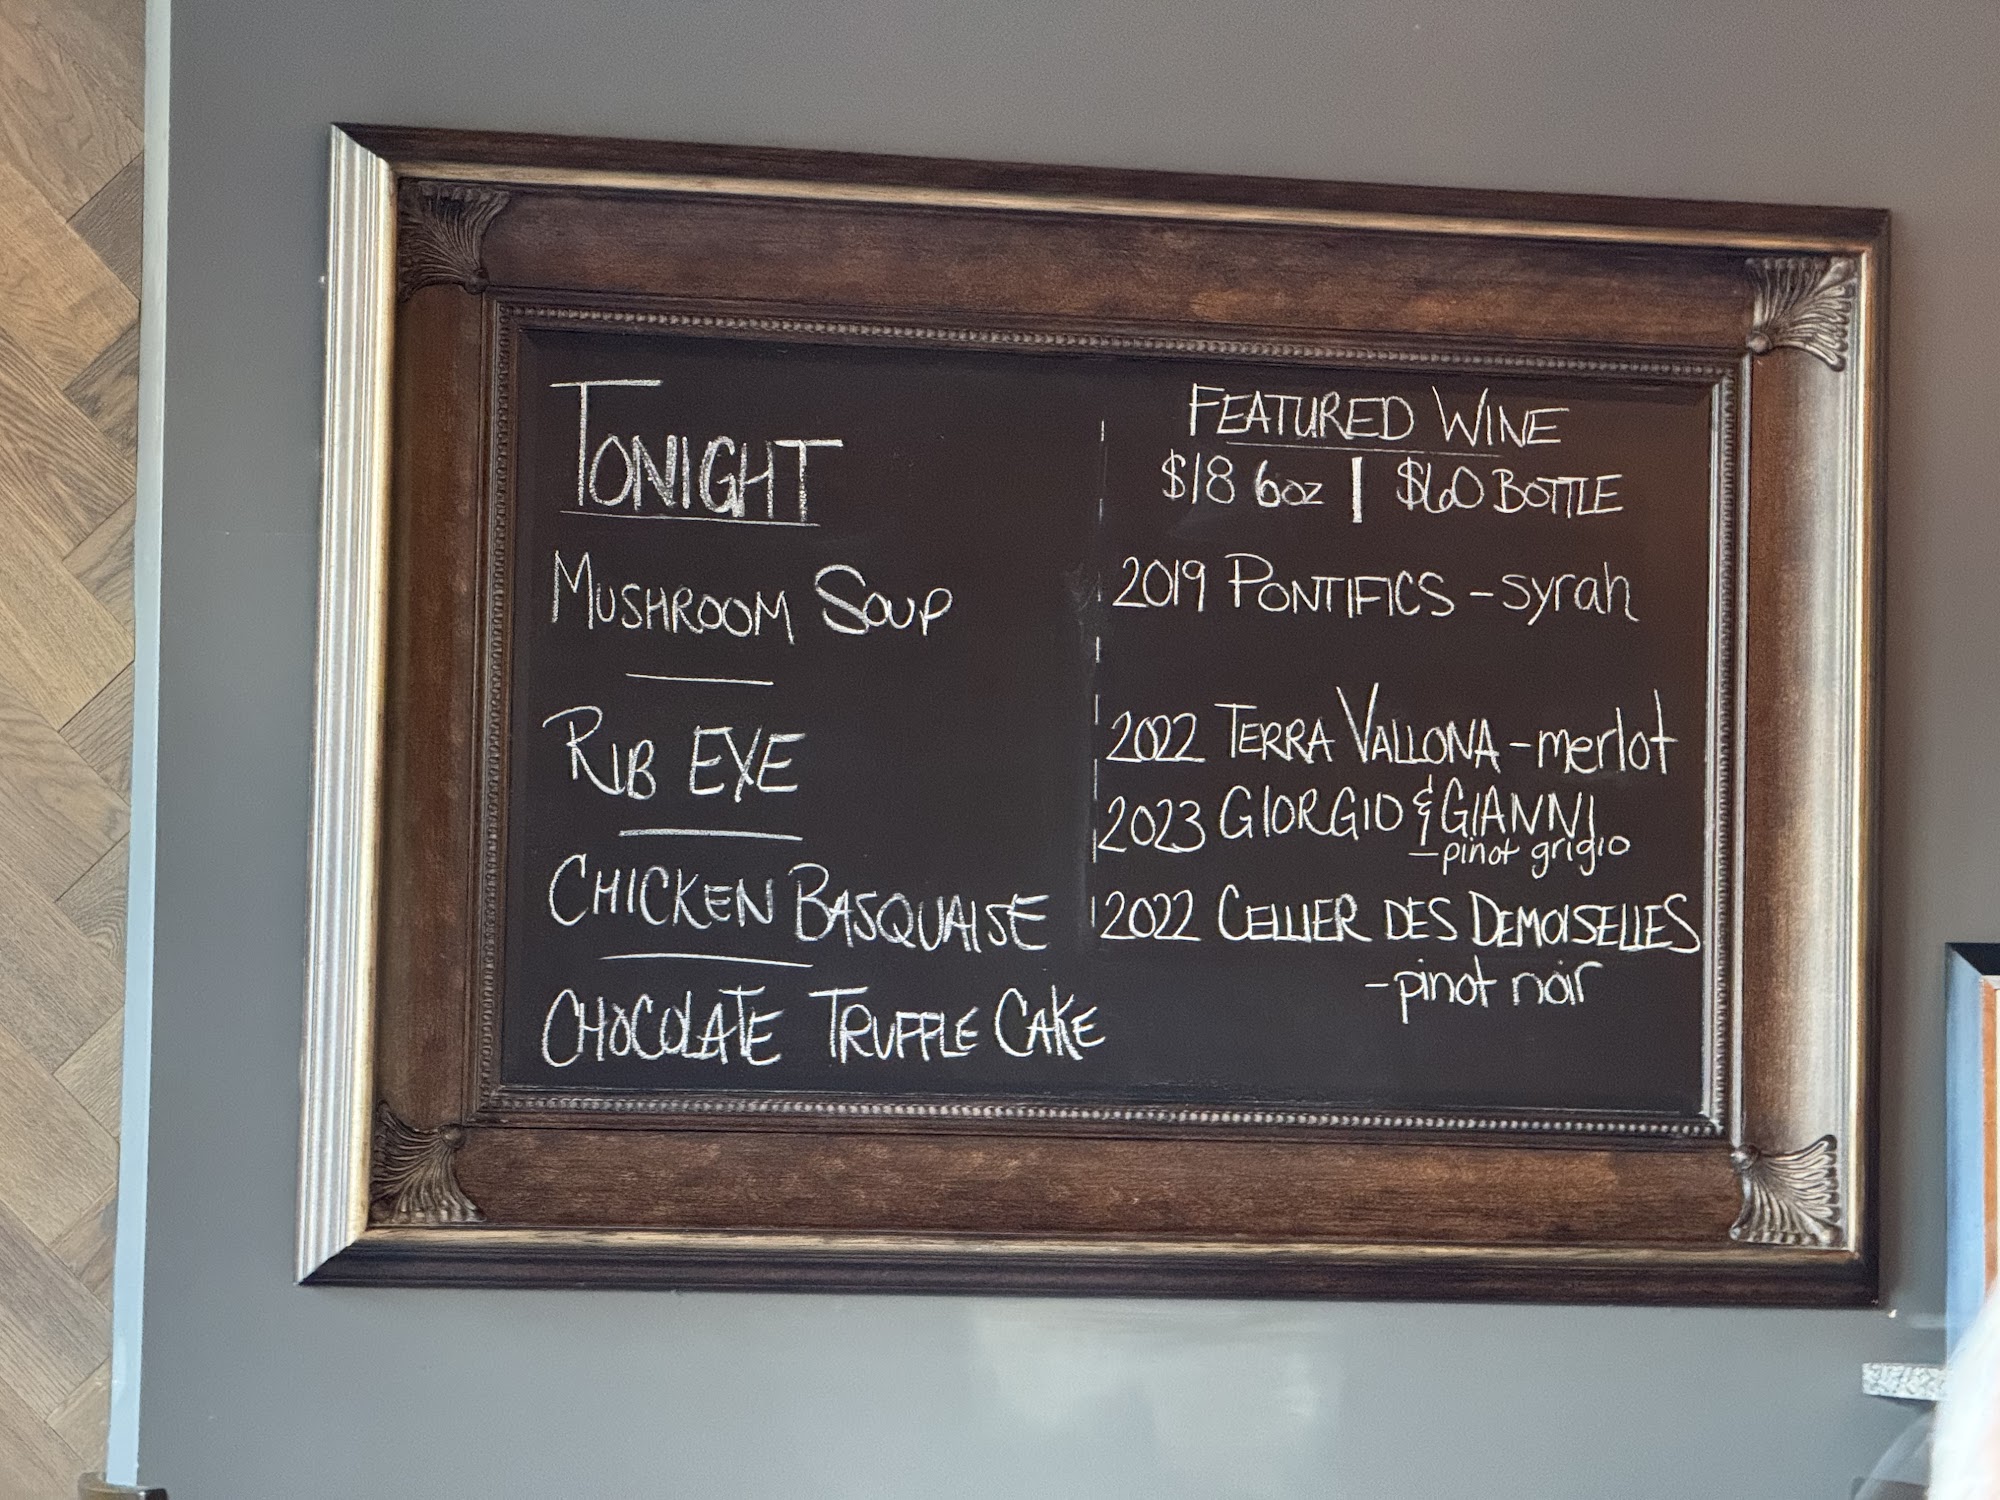 TONIGHT
MUSHROOM SOUP
RIB EYE
CHICKEN BASQUAISE
CHOCOLATE TRUFFLE CAKE
FEATURED WINE
$18 6oz | $60 BOTTLE
2019 PONTIFICS - syrah
2022 TERRA VALLONA - merlot
2023 GIORGIO & GIANNI
- pinot grigio
2022 CELLIER DES DEMOISELLES
- pinot noir